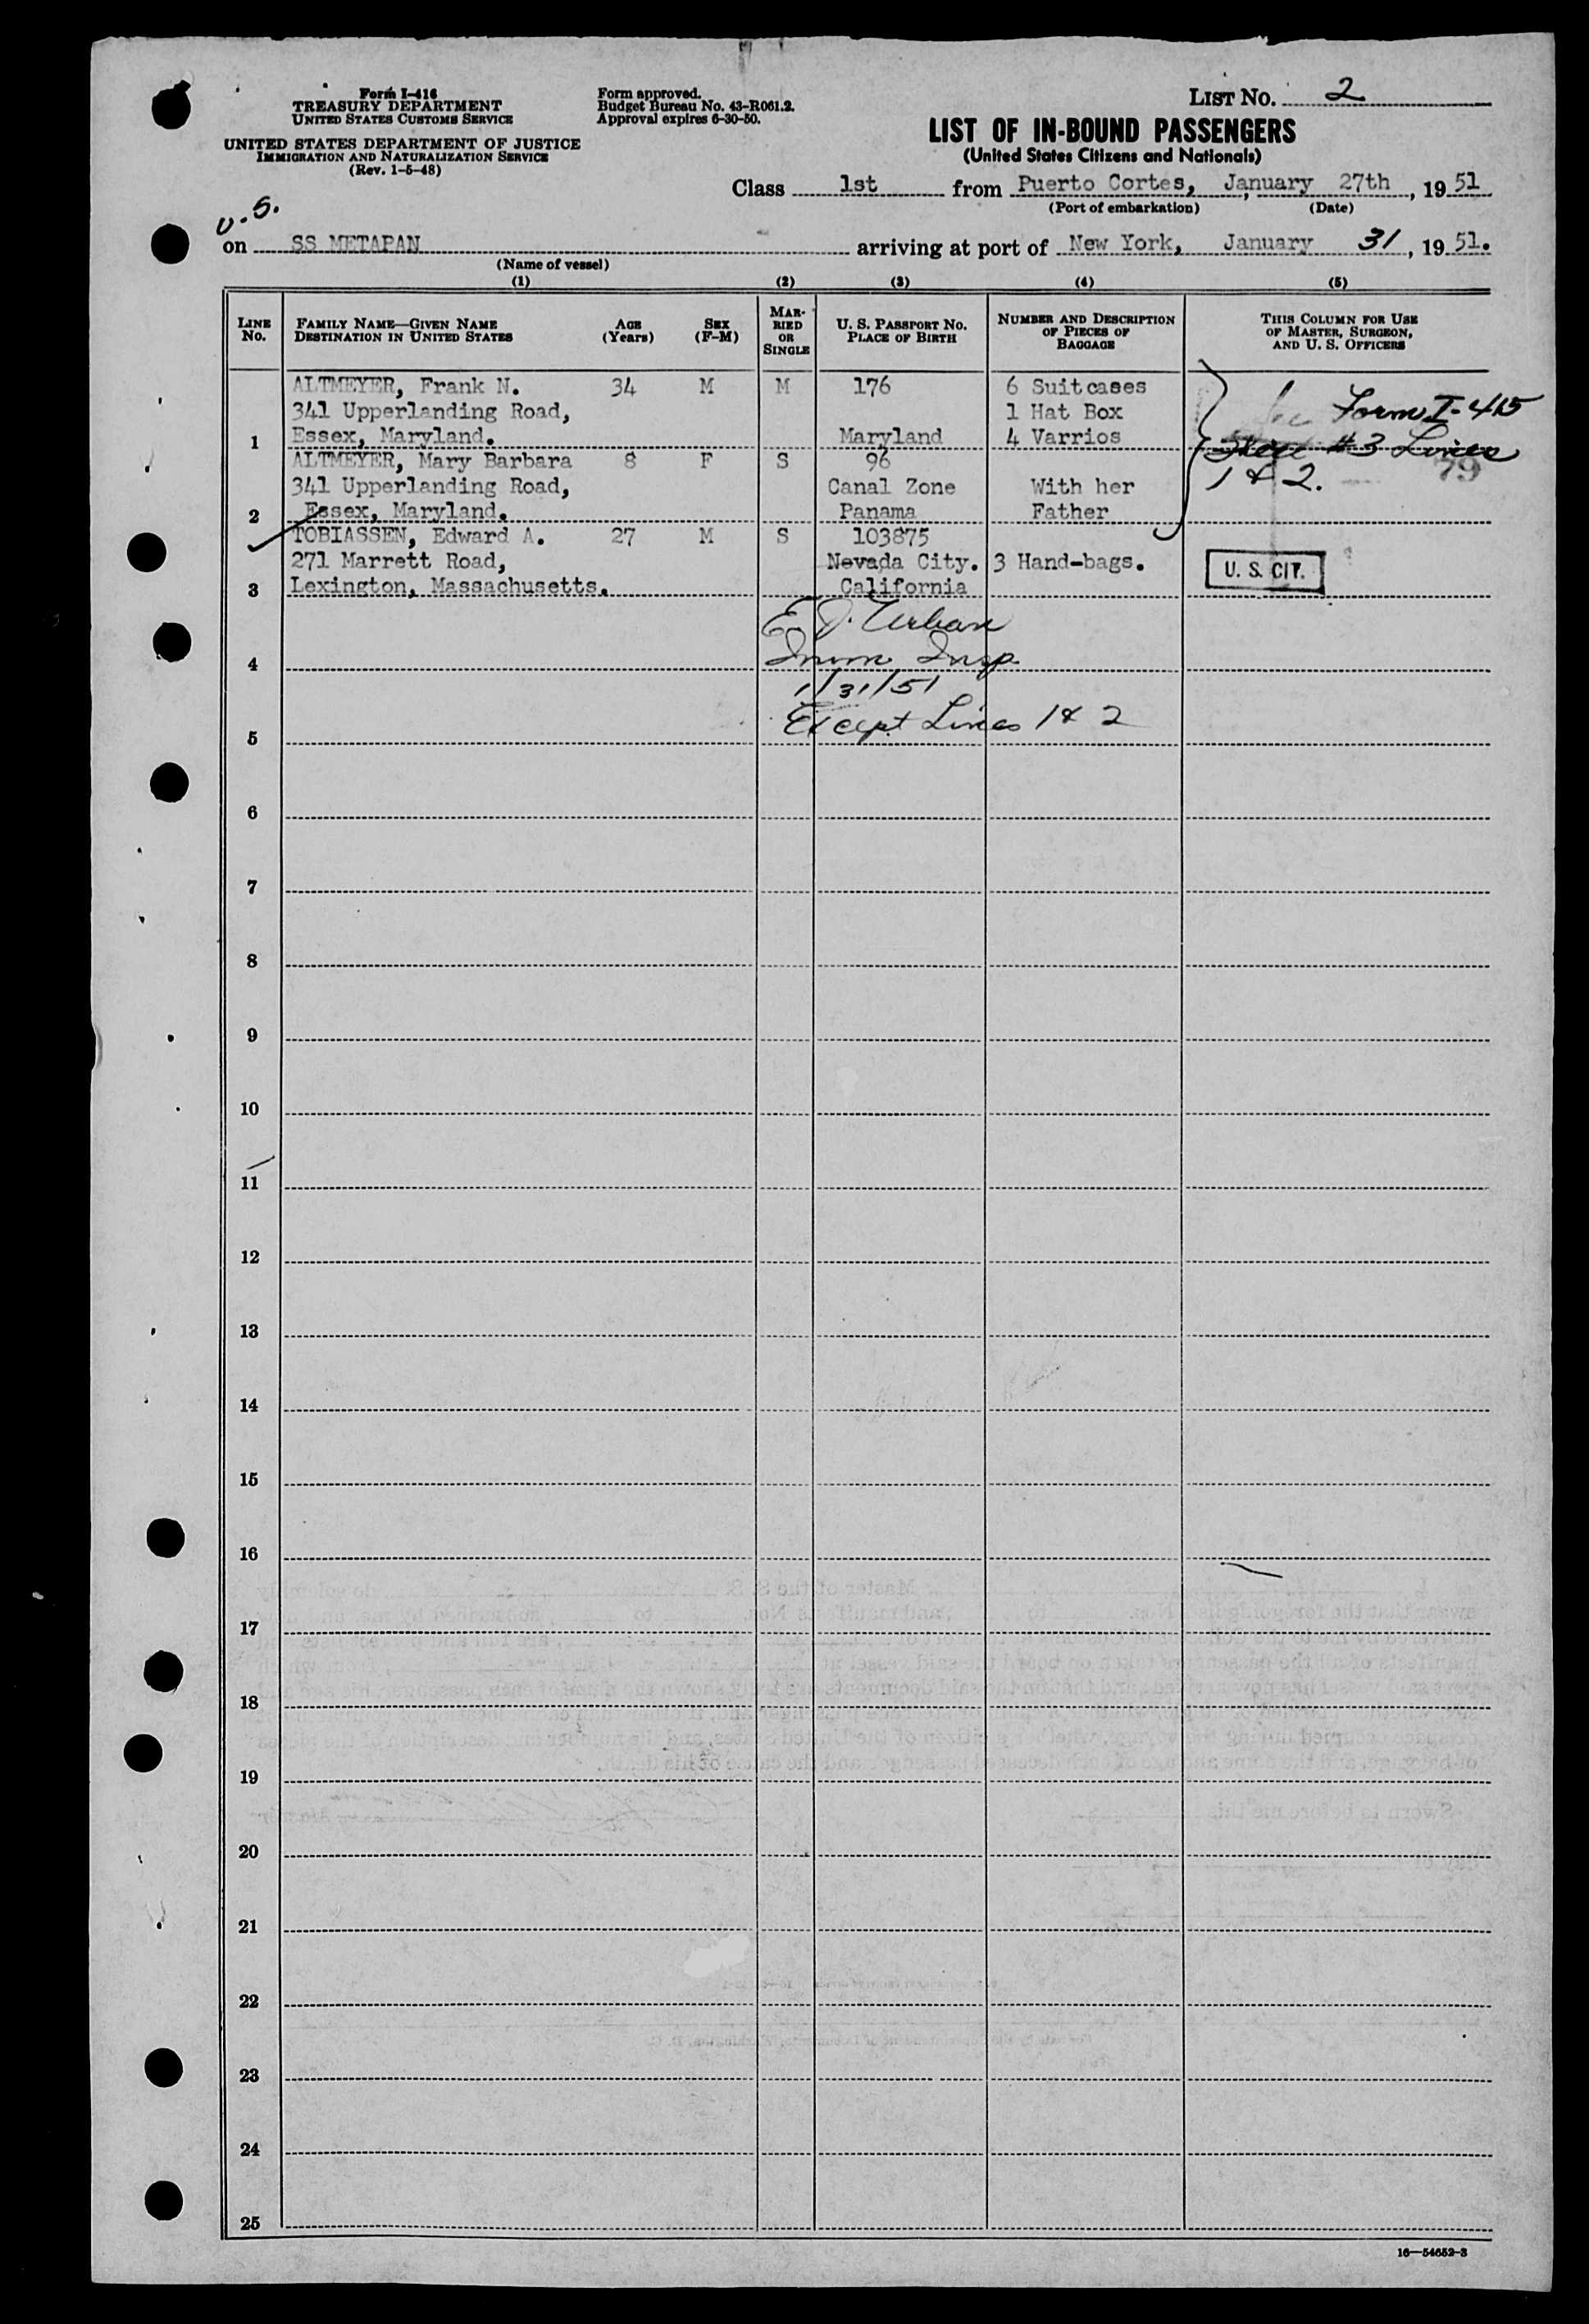 Form I-416
TREASURY DEPARTMENT
UNITED STATES CUSTOMS SERVICE
UNITED STATES DEPARTMENT OF JUSTICE
IMMIGRATION AND NATURALIZATION SERVICE
(Rev. 1-5-48)
Form approved.
Budget Bureau No. 43-R061.2.
Approval expires 6-30-50.
LIST NO. 2
LIST OF IN-BOUND PASSENGERS
(United States Citizens and Nationals)
Class 1st from Puerto Cortes, January 27th, 1951
(Port of embarkation) (Date)
U.S.
on SS METAPAN arriving at port of New York, January 31, 1951.
(Name of vessel)
(1) (2) (3) (4) (5)
LINE NO.
FAMILY NAME—GIVEN NAME
DESTINATION IN UNITED STATES
AGE (Years)
SEX (F-M)
MARRIED OR SINGLE
U. S. PASSPORT NO.
PLACE OF BIRTH
NUMBER AND DESCRIPTION OF PIECES OF BAGGAGE
THIS COLUMN FOR USE OF MASTER, SURGEON, AND U. S. OFFICERS
ALTMEYER, Frank N. 34 M M 176 6 Suitcases
341 Upperlanding Road, 1 Hat Box Form I-415
1 Essex, Maryland. Maryland 4 Varrios #3 Lines
ALTMEYER, Mary Barbara 8 F S 96 79
341 Upperlanding Road, Canal Zone With her 1 & 2.
2 Essex, Maryland. Panama Father
TOBIASSEN, Edward A. 27 M S 103875
271 Marrett Road, Nevada City. 3 Hand-bags. U. S. CIT.
3 Lexington, Massachusetts. California
E. J. Urban
4 Imm Insp.
1/31/51
5 Except Lines 1 & 2
6
7
8
9
10
11
12
13
14
15
16
17
18
19
20
21
22
23
24
25
16—54652-3